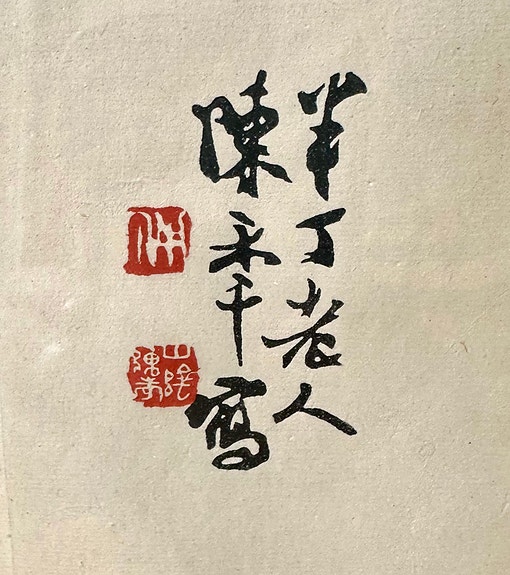 半丁老人
陳秊寫
山陰
陳年